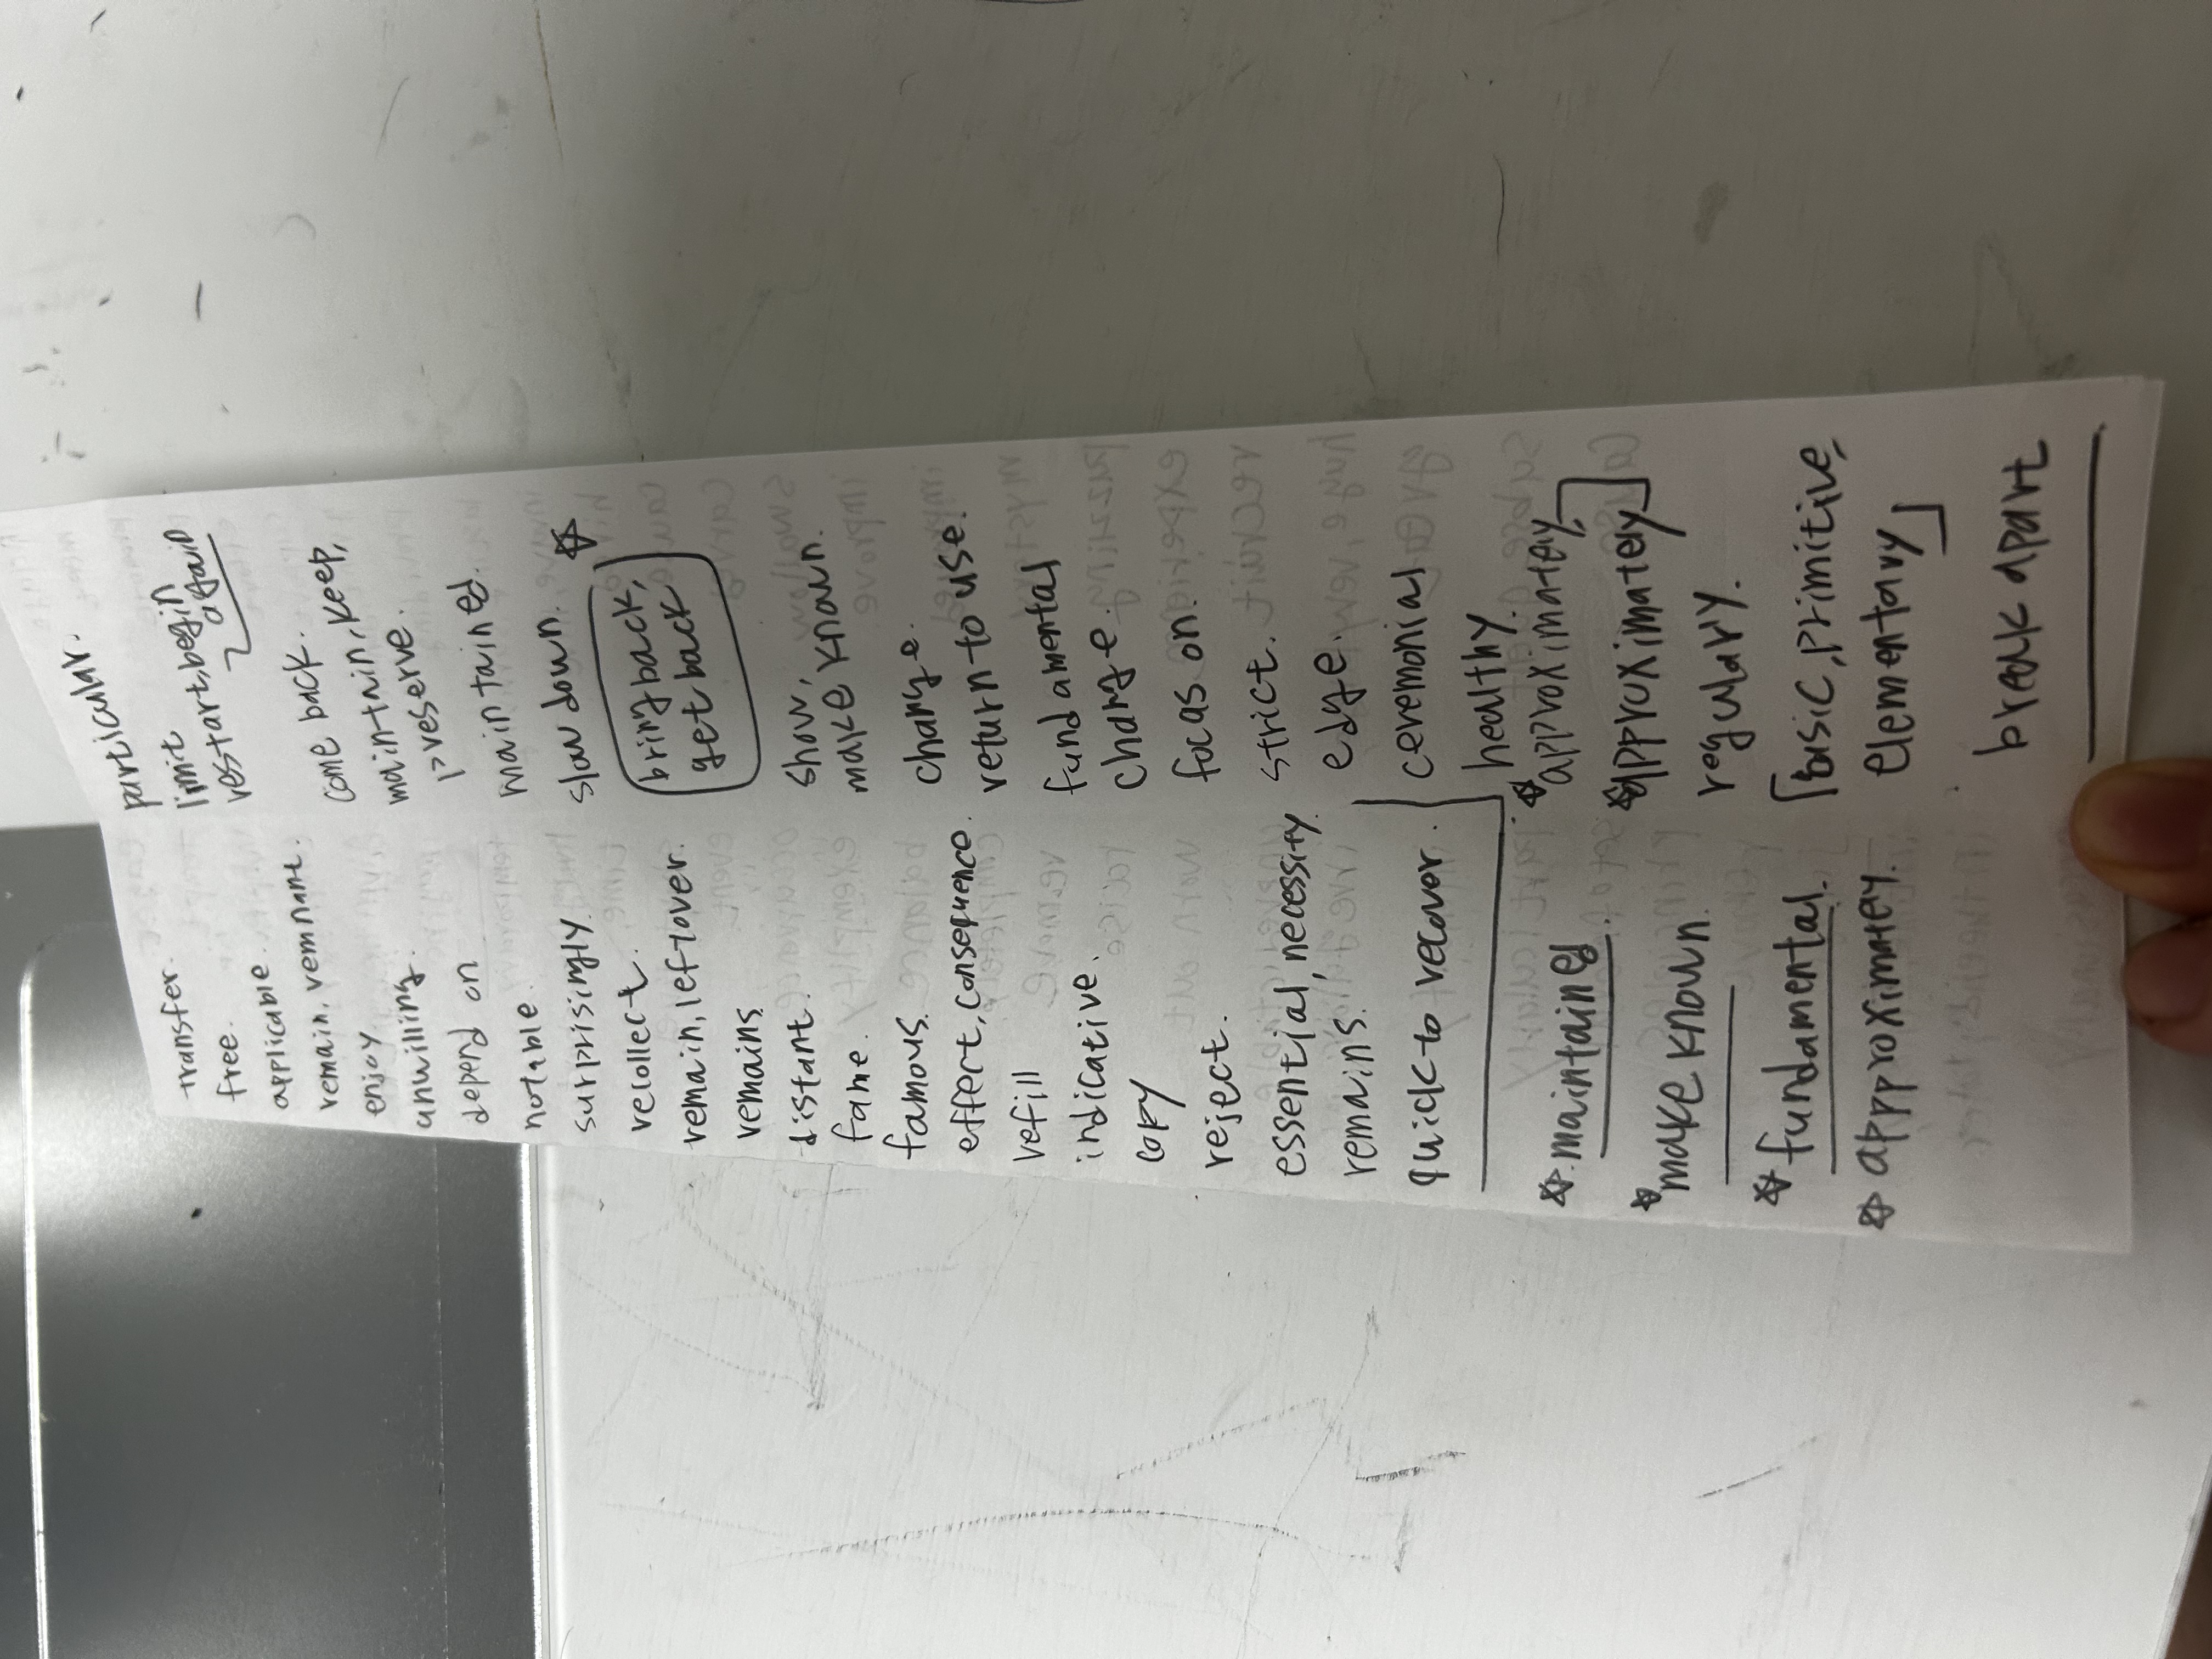 transfer.
free.
applicable.
remain, remnant.
enjoy
unwilling.
depend on
notable.
surprisingly.
recollect.
remain, leftover.
remains
distant.
fame.
famous.
effert, consequence.
refill
indicative.
copy
reject.
essential, necessity.
remains.
quick to recover.
☆ maintained.
☆ make known.
☆ fundamental.
☆ approximatey.
particular.
limit
restart, begin
again
come back.
main-tain, keep,
preserve.
maintained.
slow down. ☆
bring back,
get back
show,
make known.
change
return to use.
fundamental
change.
focas on.
strict.
edge.
ceremonial
healthy.
☆ approximatey,
☆ approximatey
regulary.
basic, primitive,
elementary
break apart